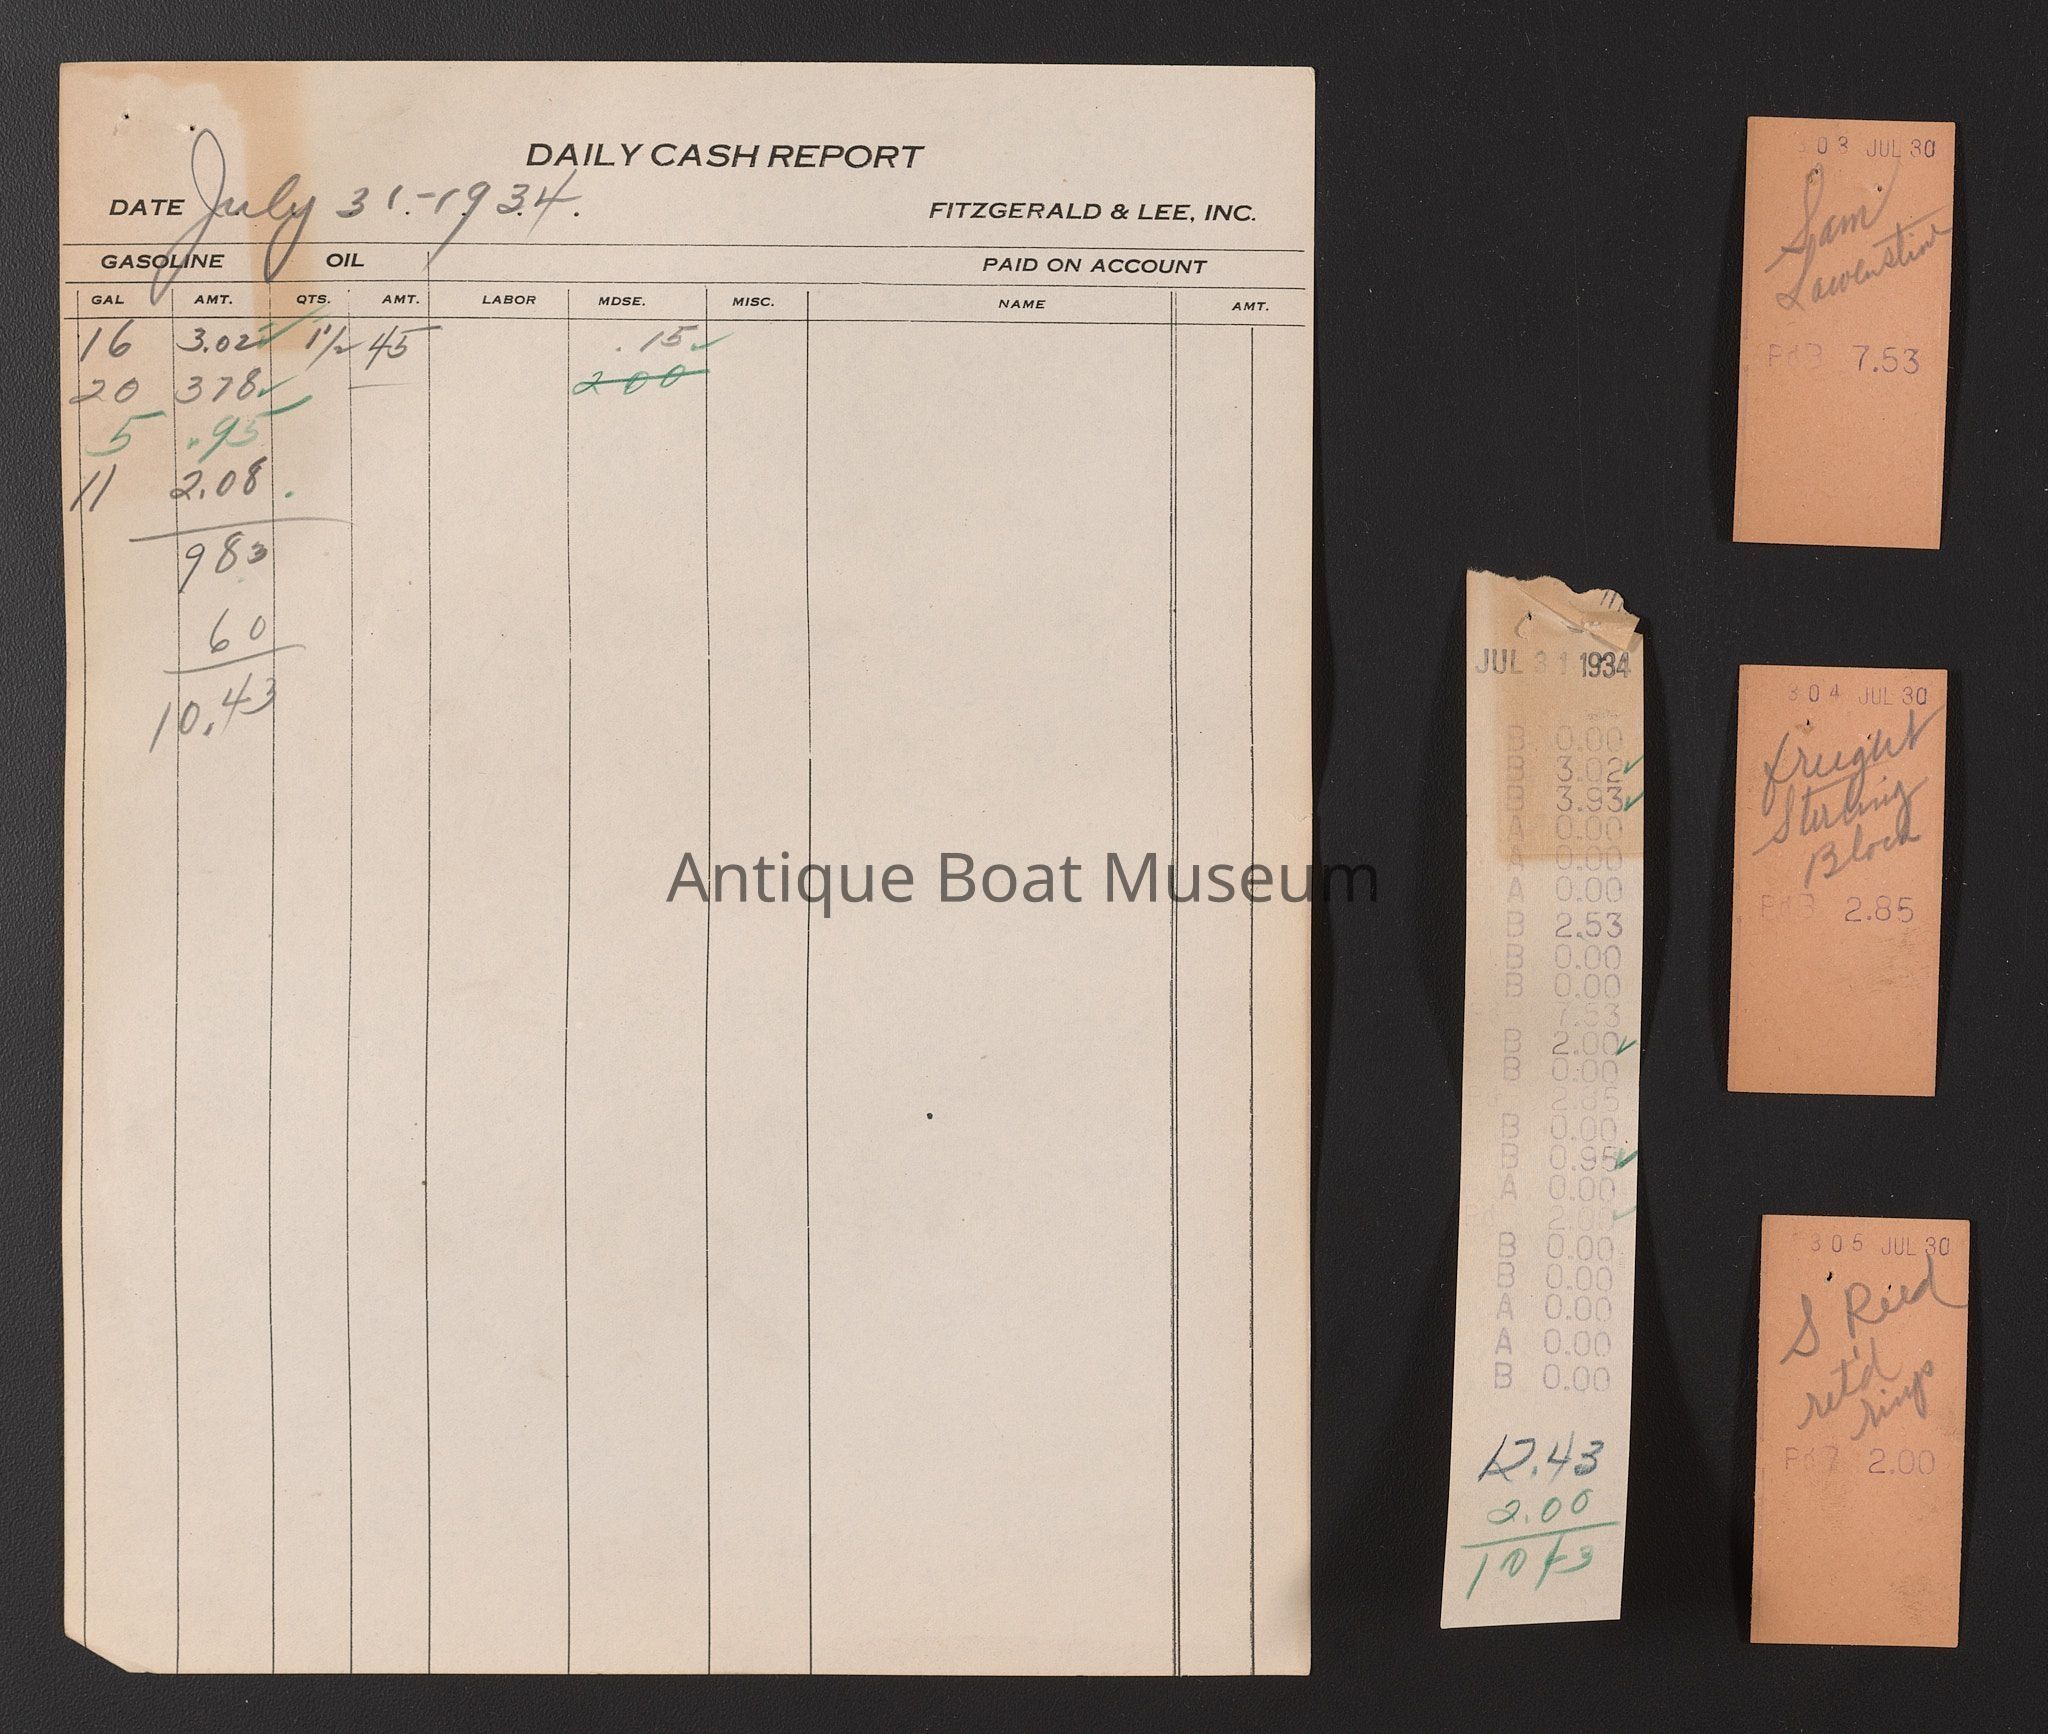 DAILY CASH REPORT
DATE July 31.-1934.
FITZGERALD & LEE, INC.
GASOLINE OIL PAID ON ACCOUNT
GAL AMT. QTS. AMT. LABOR MDSE. MISC. NAME AMT.
16 3.02 1 1/2 45 .15
20 378 — 200
5 .95
11 2.08
983
60
10.43
JUL 31 1934
B 0.00
B 3.02
B 3.93
A 0.00
A 0.00
A 0.00
B 2.53
B 0.00
B 0.00
7.53
B 2.00
B 0.00
Pd 2.85
B 0.00
B 0.95
A 0.00
Pd 2.00
B 0.00
B 0.00
A 0.00
A 0.00
B 0.00
12.43
2.00
1043
303 JUL 30
Sam
PdB 7.53
304 JUL 30
freight
Sterling
Block
PdB 2.85
305 JUL 30
S Reed
ret'd
rings
Pd 2.00
Antique Boat Museum